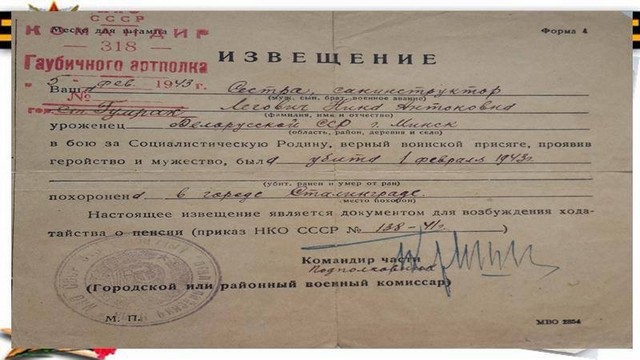 НКО
СССР
Место для штампа
Форма 4
КОМАНДИР
— 318 —
ИЗВЕЩЕНИЕ
Гаубичного артполка
"5" фев. 1943 г.
№
Ваша Сестра, санинструктор
(муж, сын, брат, военное звание)
ст. Гумрак
Нина Антоновна
(фамилия, имя и отчество)
уроженец Белорусской ССР г. Минск
(область, район, деревня и село)
в бою за Социалистическую Родину, верный воинской присяге, проявив
геройство и мужество, была убита 1 февраля 1943 г.
(убит, ранен и умер от ран)
похоронена в городе Сталинграде.
(место похорон)
Настоящее извещение является документом для возбуждения хода-
тайства о пенсии (приказ НКО СССР № 138-41г.)
Командир части
Подполковник
(Городской или районный военный комиссар)
М. П.
МВО 2854